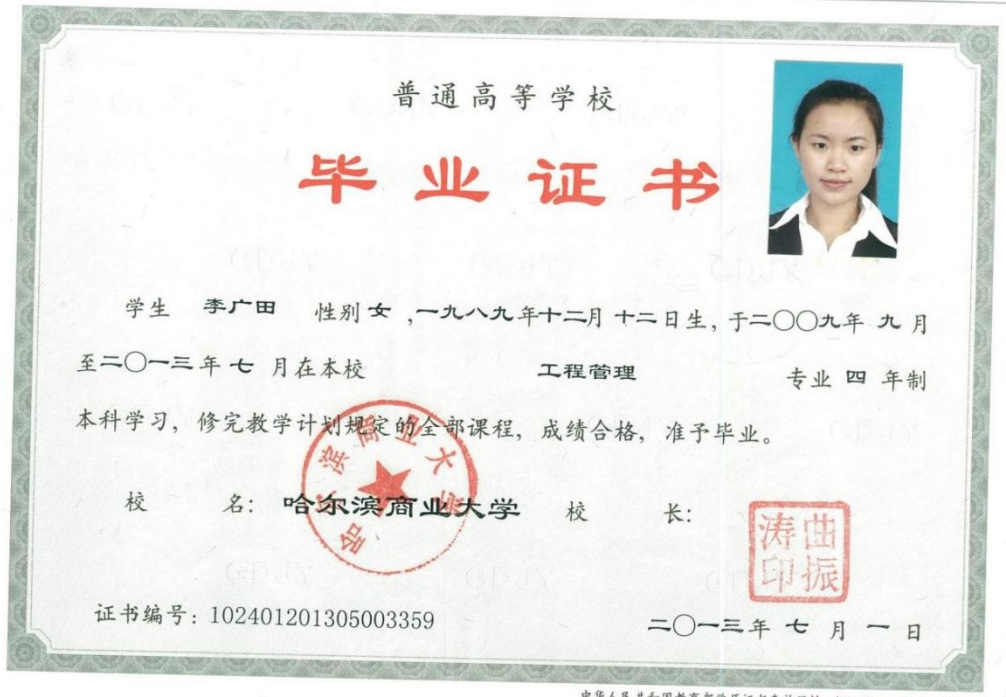 普通高等学校
毕业证书
学生 李广田 性别 女 ,一九八九年十二月十二日生, 于二〇〇九年 九月
至二〇一三年 七 月在本校 工程管理 专业 四 年制
本科学习, 修完教学计划规定的全部课程, 成绩合格, 准予毕业。
校 名: 哈尔滨商业大学 校 长:
哈尔滨商业大学
曲振涛印
证书编号: 102401201305003359
二〇一三年 七 月 一 日